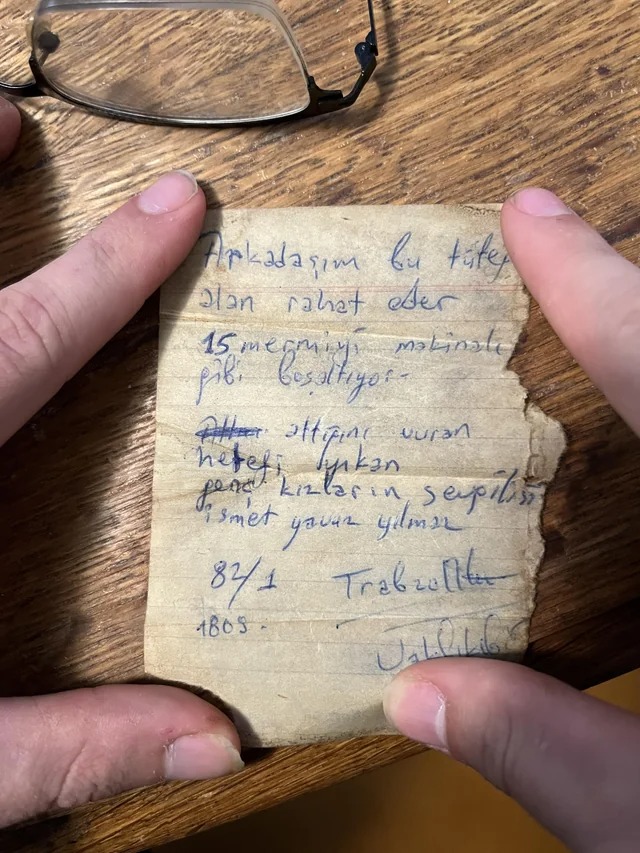 Arkadaşım bu tüfeğ
alan rahat eder
15 mermiyi makinalı
gibi boşaltıyor-
attığını vuran
hetefi yıkan
genç kızların sevgilisi
ismet yavuz yılmaz
82/1 Trabzon
1809.